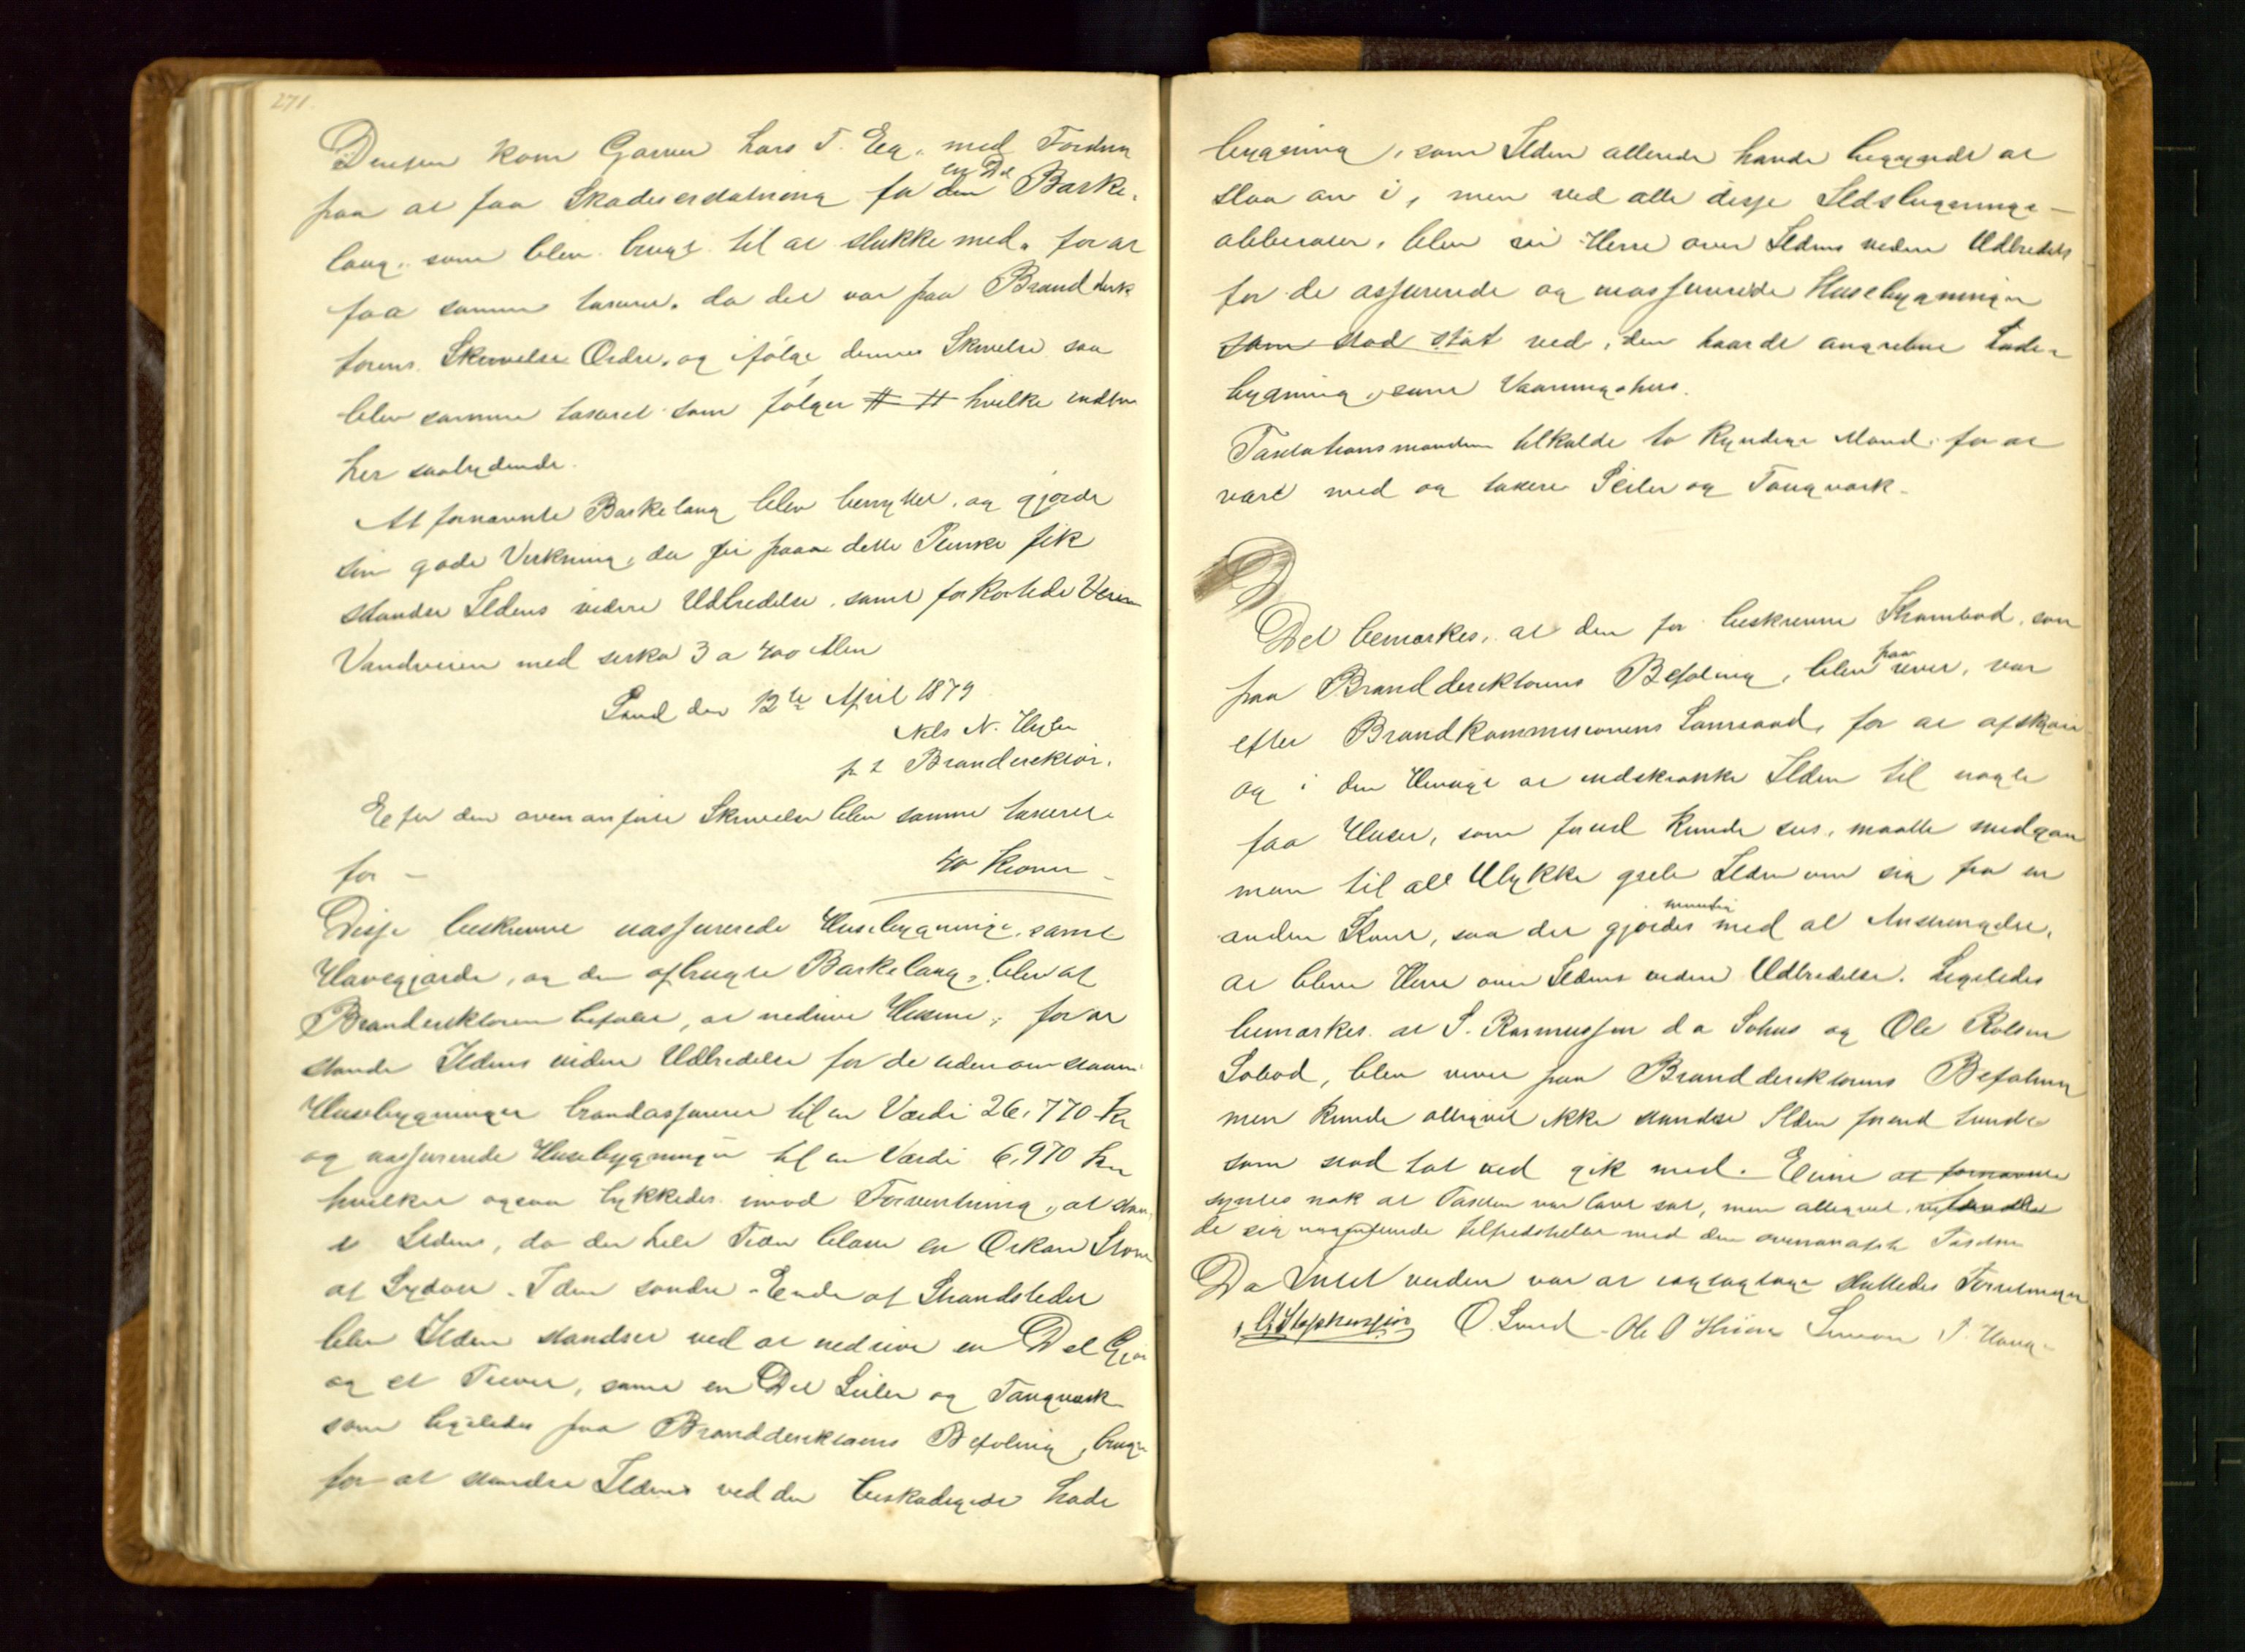 271.
Desuden kom Garver Lars T. Eeg. med Fordring
paa at faa Skadeserstatning for den en Del Barke-
laug. som blev brugt til at slukke med. for at
faa samme taxeret. da det var paa Branddirek
törens Skrivelse Ordre. og ifölge dennes Skrivelse saa
blev samme taxeret som fölger # # hvilke indtages
her saalydende.
At fornævnte Barkelaug blev benyttet. og gjorde
sin gode Virkning, da vi paa dette Punkt fik
standse Ildens videre Udbredelse. samt forkortede Veien
Vandveien med sirka 3 a 400 Alen
Sand den 12te April 1879
Nils N.
p t Branddirektör.
Efter den ovenanförte Skrivelse blev samme taxeret
for - 40 Kroner -
Disse beskrevne uassurerede Husebygninger. samt
Havegjærde, og den afbrugte Barkelaug, blev af
Branddirektören befalet, at nedrive Husene, for at
standse Ildens videre Udbredelse for de udenom staaende
Husebygninger brandassureret til en Værdi 26,770 Kr
og uassurerede Husebygninger til en Værdi 6,970 Kr
hvilket ogsaa lykkedes imod Forventning, at stand
se Ildens, da der hele Tiden blæste en Orkan Storm
af Sydost. I den söndre Ende af Strandstedet
blev Ilden standset ved at nedrive en Del
og et , samt en Del Seiler og Taugværk
som ligeledes paa Branddirektörens Befaling, brugt
for at standse Ildens ved den beskadigede Lade
bygning, som Ilden allerede havde begyndt at
slaa an i, men ved alle disse Ildsbygnings-
, blev vi Herre over Ildens videre Udbredelse
for de assurerede og uassurerede Husebygninger
som stod tæt ved, den haardt angrebne Lade-
bygning, samt Vaaningshus.
Taxtationsmændene tilkaldte to kyndige Mænd. for at
være med og taxere Seiler og Taugværk.
Det bemærkes, at den for beskrevne Skrambod, som
paa Branddirektörens Befaling, blev paa revet, var
efter Brandkommisionens Samraad, for at afskjære
og i den Henseende at indskrænke Ilden til nogle
faa Huser, som forud kunde sees, maatte medgaa
men til all Ulykke greb Ilden om sig fra en
anden Kant, saa det gjordes med al Anstrengelse,
at blive Herre over Ildens videre Udbredelse. Ligeledes
bemærkes at S. Rasmussen d a Söhus og Ole Rolsen
Söbod, blev revet paa Branddirektörens Befaling
men kunde alligevel ikke standse Ilden forend
som stod tæt ved gik med. Eierne at fornævnte
syntes nok at Taxten var lavt sat, men alligevel
de sig tilfredsstillet med den ovenanförte Taxten
Da Intet videre var at iagttage sluttedes Forretningen
O. Sund - Ole O Simon T. Haug